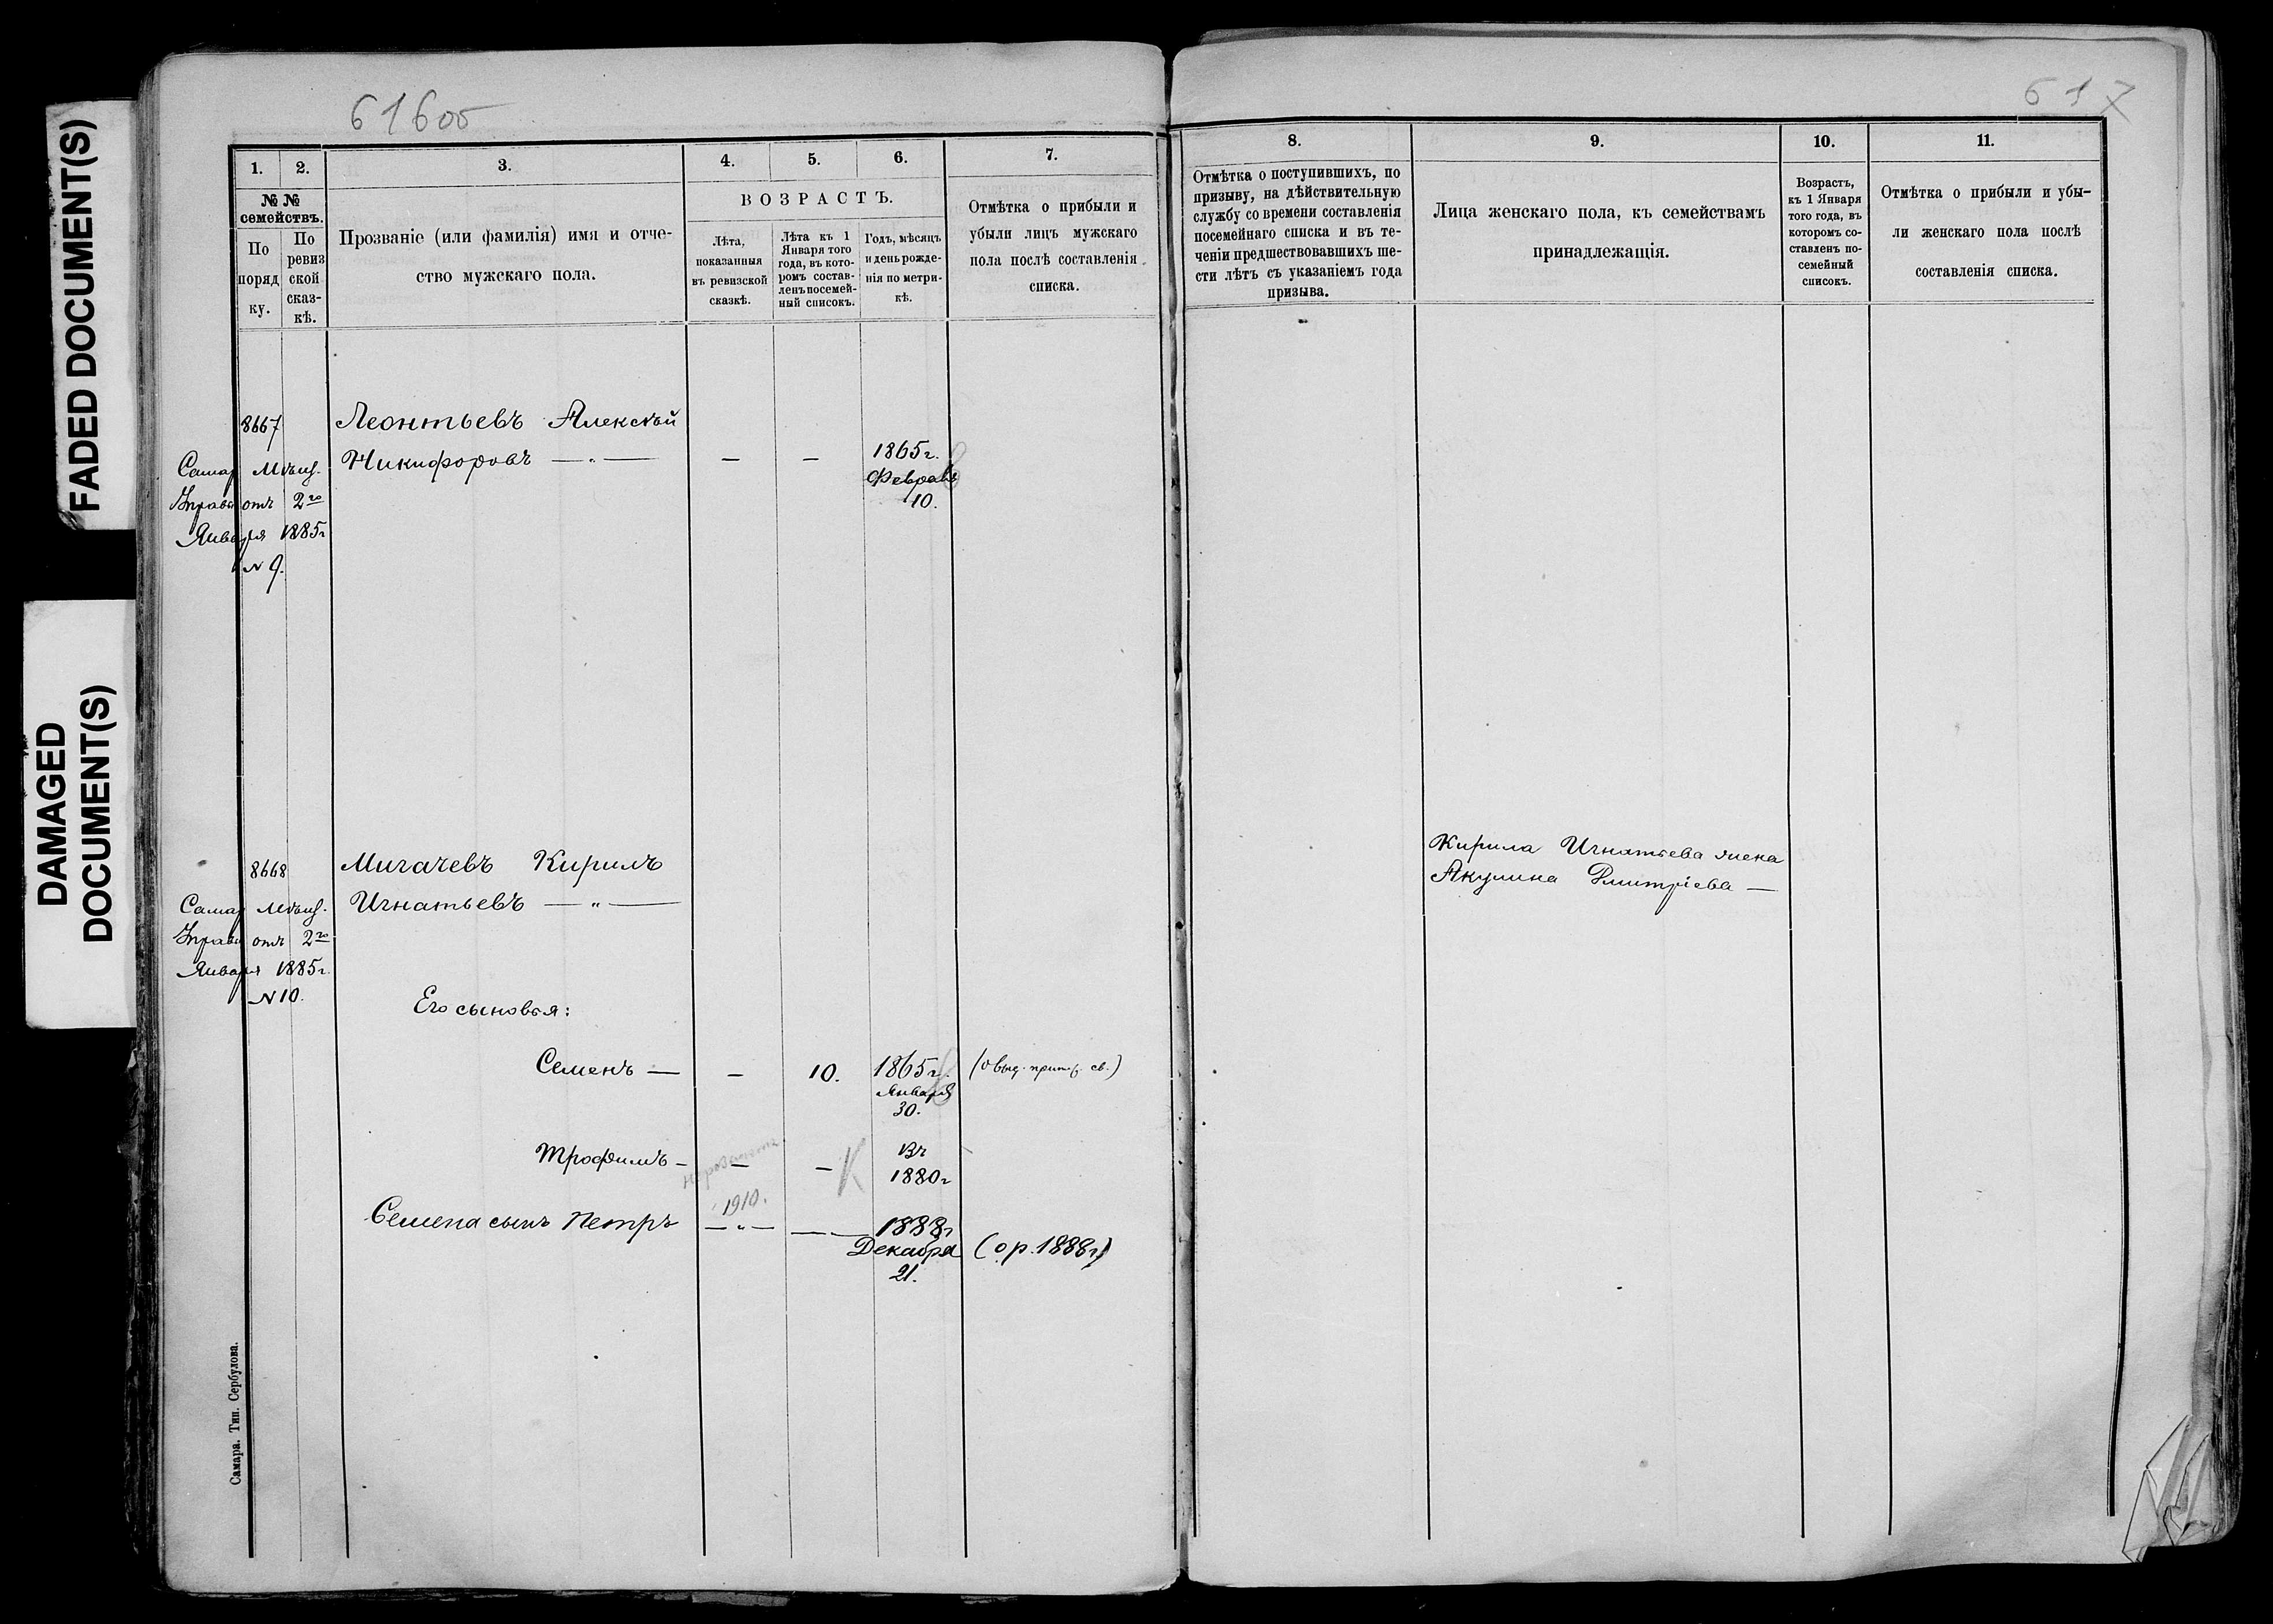 FADED DOCUMENT(S)
DAMAGED
DOCUMENT(S)
616об
1.
2.
3.
4.
5.
6.
7.
№ №
семействъ.
По
поряд
ку.
По
ревиз
ской
сказ-
кѣ.
Прозваніе (или фамилія) имя и отче-
ство мужскаго пола.
ВОЗРАСТЪ.
Лѣта,
показанныя
въ ревизской
сказкѣ.
Лѣта къ 1
Января того
года, въ кото-
ромъ состав-
ленъ посемей-
ный списокъ.
Годъ, мѣсяцъ
и день рожде-
нія по метри-
кѣ.
Отмѣтка о прибыли и
убыли лицъ мужскаго
пола послѣ составленія
списка.
8667
Леонтьевъ Алексѣй
Никифоровъ — „ —
— —
1865 г.
Февраля
10.
Самар Мѣщ.
Управы отъ 2го
Января 1885 г
N 9.
8668
Мигачевъ Кирилъ
Игнатьевъ — „ —
Самар Мѣщ.
Управы отъ 2го
Января 1885 г.
N 10.
Его сыновья:
Семенъ —
—
10.
1865 г.
Января
30.
Трофимъ —
— —
К
Въ
1880 г
1910.
Семена сынъ Петръ
— „ — — —
1888 г
Декабря
21.
(о р. 1888 г)
Самара. Тип. Сербулова.
617
8.
9.
10.
11.
Отмѣтка о поступившихъ, по
призыву, на дѣйствительную
службу со времени составленія
посемейнаго списка и въ те-
ченіи предшествовавшихъ ше-
сти лѣтъ съ указаніемъ года
призыва.
Лица женскаго пола, къ семействамъ
принадлежащія.
Возрастъ,
къ 1 Января
того года, въ
которомъ со-
ставленъ по-
семейный
списокъ.
Отмѣтка о прибыли и убы-
ли женскаго пола послѣ
составленія списка.
Кирила Игнатьева жена
Акулина Дмитріева —